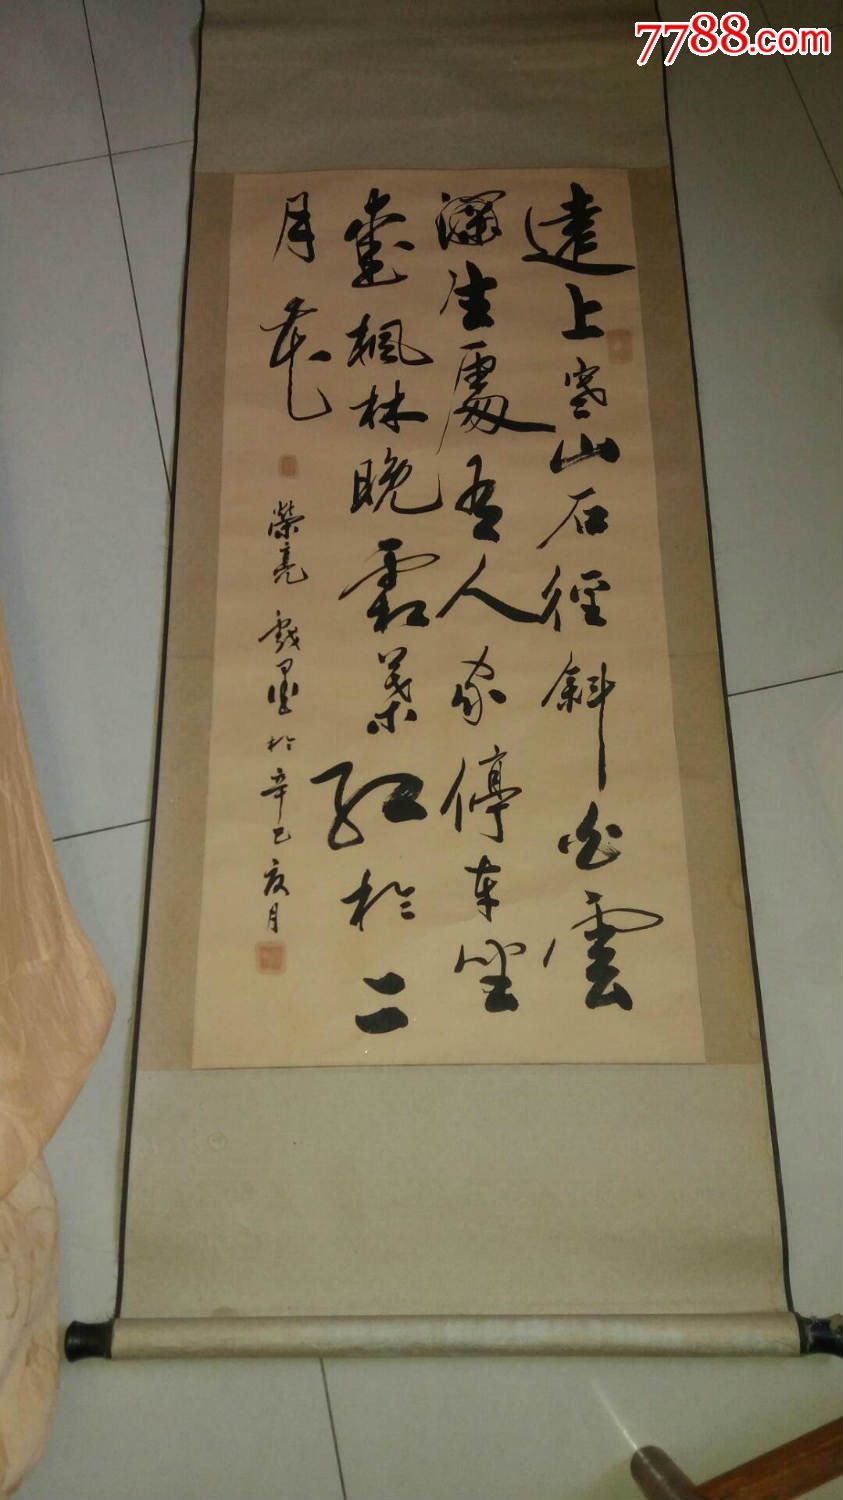 7788.com
遠上寒山石徑斜白雲
深生處有人家停車坐
愛楓林晚霜葉紅於二
月花
榮亮 戲墨於辛巳夏月